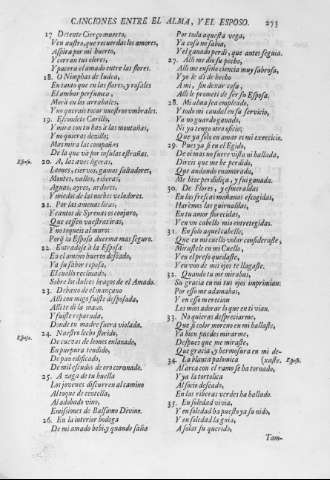 CANCIONES ENTRE EL ALMA, Y EL ESPOSO. 273
17 Detente Cierço muerto,
Ven austro, que recuerdas los amores,
Aspira por mi huerto,
Y corran tus olores,
Y pacera el amado entre las flores.
18. O Nimphas de Iudea,
En tanto que en las flores, y rosales
El ambar perfumea,
Morà en los arrabales,
Y no querais tocar nuestros umbrales.
19. Escondete Carillo,
Y mira con tu haz à las montañas,
Y no quieras dezillo;
Mas mira las compañas
De la que và por insulas estrañas.
Esposo. 20. A las aves ligeras,
Leones, ciervos, gamos saltadores,
Montes, valles, riberas,
Aguas, ayres, ardores,
Y miedos de las noches veladores.
21. Por las amenas liras,
Y cantos de Syrenas os conjuro,
Que cessen vuestras iras,
Y no toqueis al muro,
Porq̃ la Esposa duerma mas seguro.
22. Entradose à la Esposa
En el ameno huerto desseado,
Ya su sabor reposa,
El cuello reclinado,
Sobre los dulces braços de el Amado.
23. Debaxo de el mançano
Alli conmigo fuiste desposada,
Alli te dì la mano,
Y fuiste reparada,
Donde tu madre fuera violada.
24. Nuestro lecho florido,
De cuevas de leones enlazado,
En purpura tendido,
De paz edificado,
De mil escudos de oro coronado.
25. A zaga de tu huella
Los jovenes discurren al camino
Al toque de centella,
Al adobado vino,
Emissiones de Balsamo Divino.
26. En la interior bodega
De mi amado bebì, y quando salia
Por toda aquesta vega,
Ya cosa no sabia,
Y el ganado perdì, que antes seguia.
27. Alli me diò su pecho,
Alli me enseñò ciencia muy sabrosa,
Y yo le dì de hecho
A mi, sin dexar cosa,
Alli le prometì de ser su Esposa.
28. Mi alma se ha empleado,
Y todo mi caudal en su servicio,
Ya no guardo ganado,
Ni ya tengo otro oficio;
Que ya solo en amar es mi exercicio.
29. Pues ya si en el Egido,
De oy mas no fuere vista ni hallada,
Direis que me he perdido,
Que andando enamorada,
Me hize perdidiça, y fui ganada.
30. De Flores, y esmeraldas
En las frescas mañanas escogidas,
Harèmos las guirnaldas,
En tu amor florecidas,
Y en vn cabello mio entretegidas.
31. En solo aquel cabello,
Que en mi cuello volar consideraste,
Mirastele en mi Cuello,
Y en el preso quedaste,
Y en vno de mis ojos te llagaste.
32. Quando tu me mirabas,
Su gracia en mi tus ojos imprimian:
Por esso me adamabas,
Y en esso merecian
Los mios adorar lo que en ti vian.
33. No quieras despreciarme,
Que si color moreno en mi hallaste,
Ya bien puedes mirarme,
Despues que me miraste,
Que gracia, y hermosura en mi dexaste.
34. La blanca palomica Esposo.
Al arca con el ramo se ha tornado,
Y ya la tortolica
Al socio desseado,
En las riberas verdes ha hallado.
35. En soledad vivia,
Y en soledad ha puesto ya su nido,
Y en soledad la guia,
A solas su querido,
Tam-